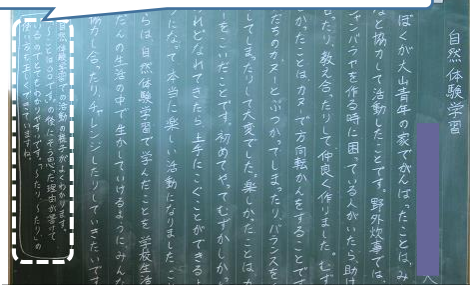 自然体験学習
ぼくが大山青年の家でがんばったことは、み
など協力して活動したことです。野外炊事では、
ンバラヤを作る時に困っている人がいたら、助け
ったり、教え合ったりして仲良く作りました。むず
かったことはカヌーで方向転かんをすることです
だちのカヌーとぶつかってしまったり、バランスを
してしまったりして大変でした。楽しかったことは、カ
をこいだことです。初めてやってむずかしかっ
れどなれてきたら上手にこぐことができるよ
うになって本当に楽しい活動になりました。こ
らは自然体験学習で学んだことを学校生活
だんの生活の中で生かしていけるようにみん
協力し合ったりチャレンジしたりしていきたいです
自然体験学習での活動の様子がよくわかります。
〜ことは〇〇です。の後にそう思った理由が書けて
いるのでとてもわかりやすいです。〜たり、〜たり」の
使い方も正しくできていますね。